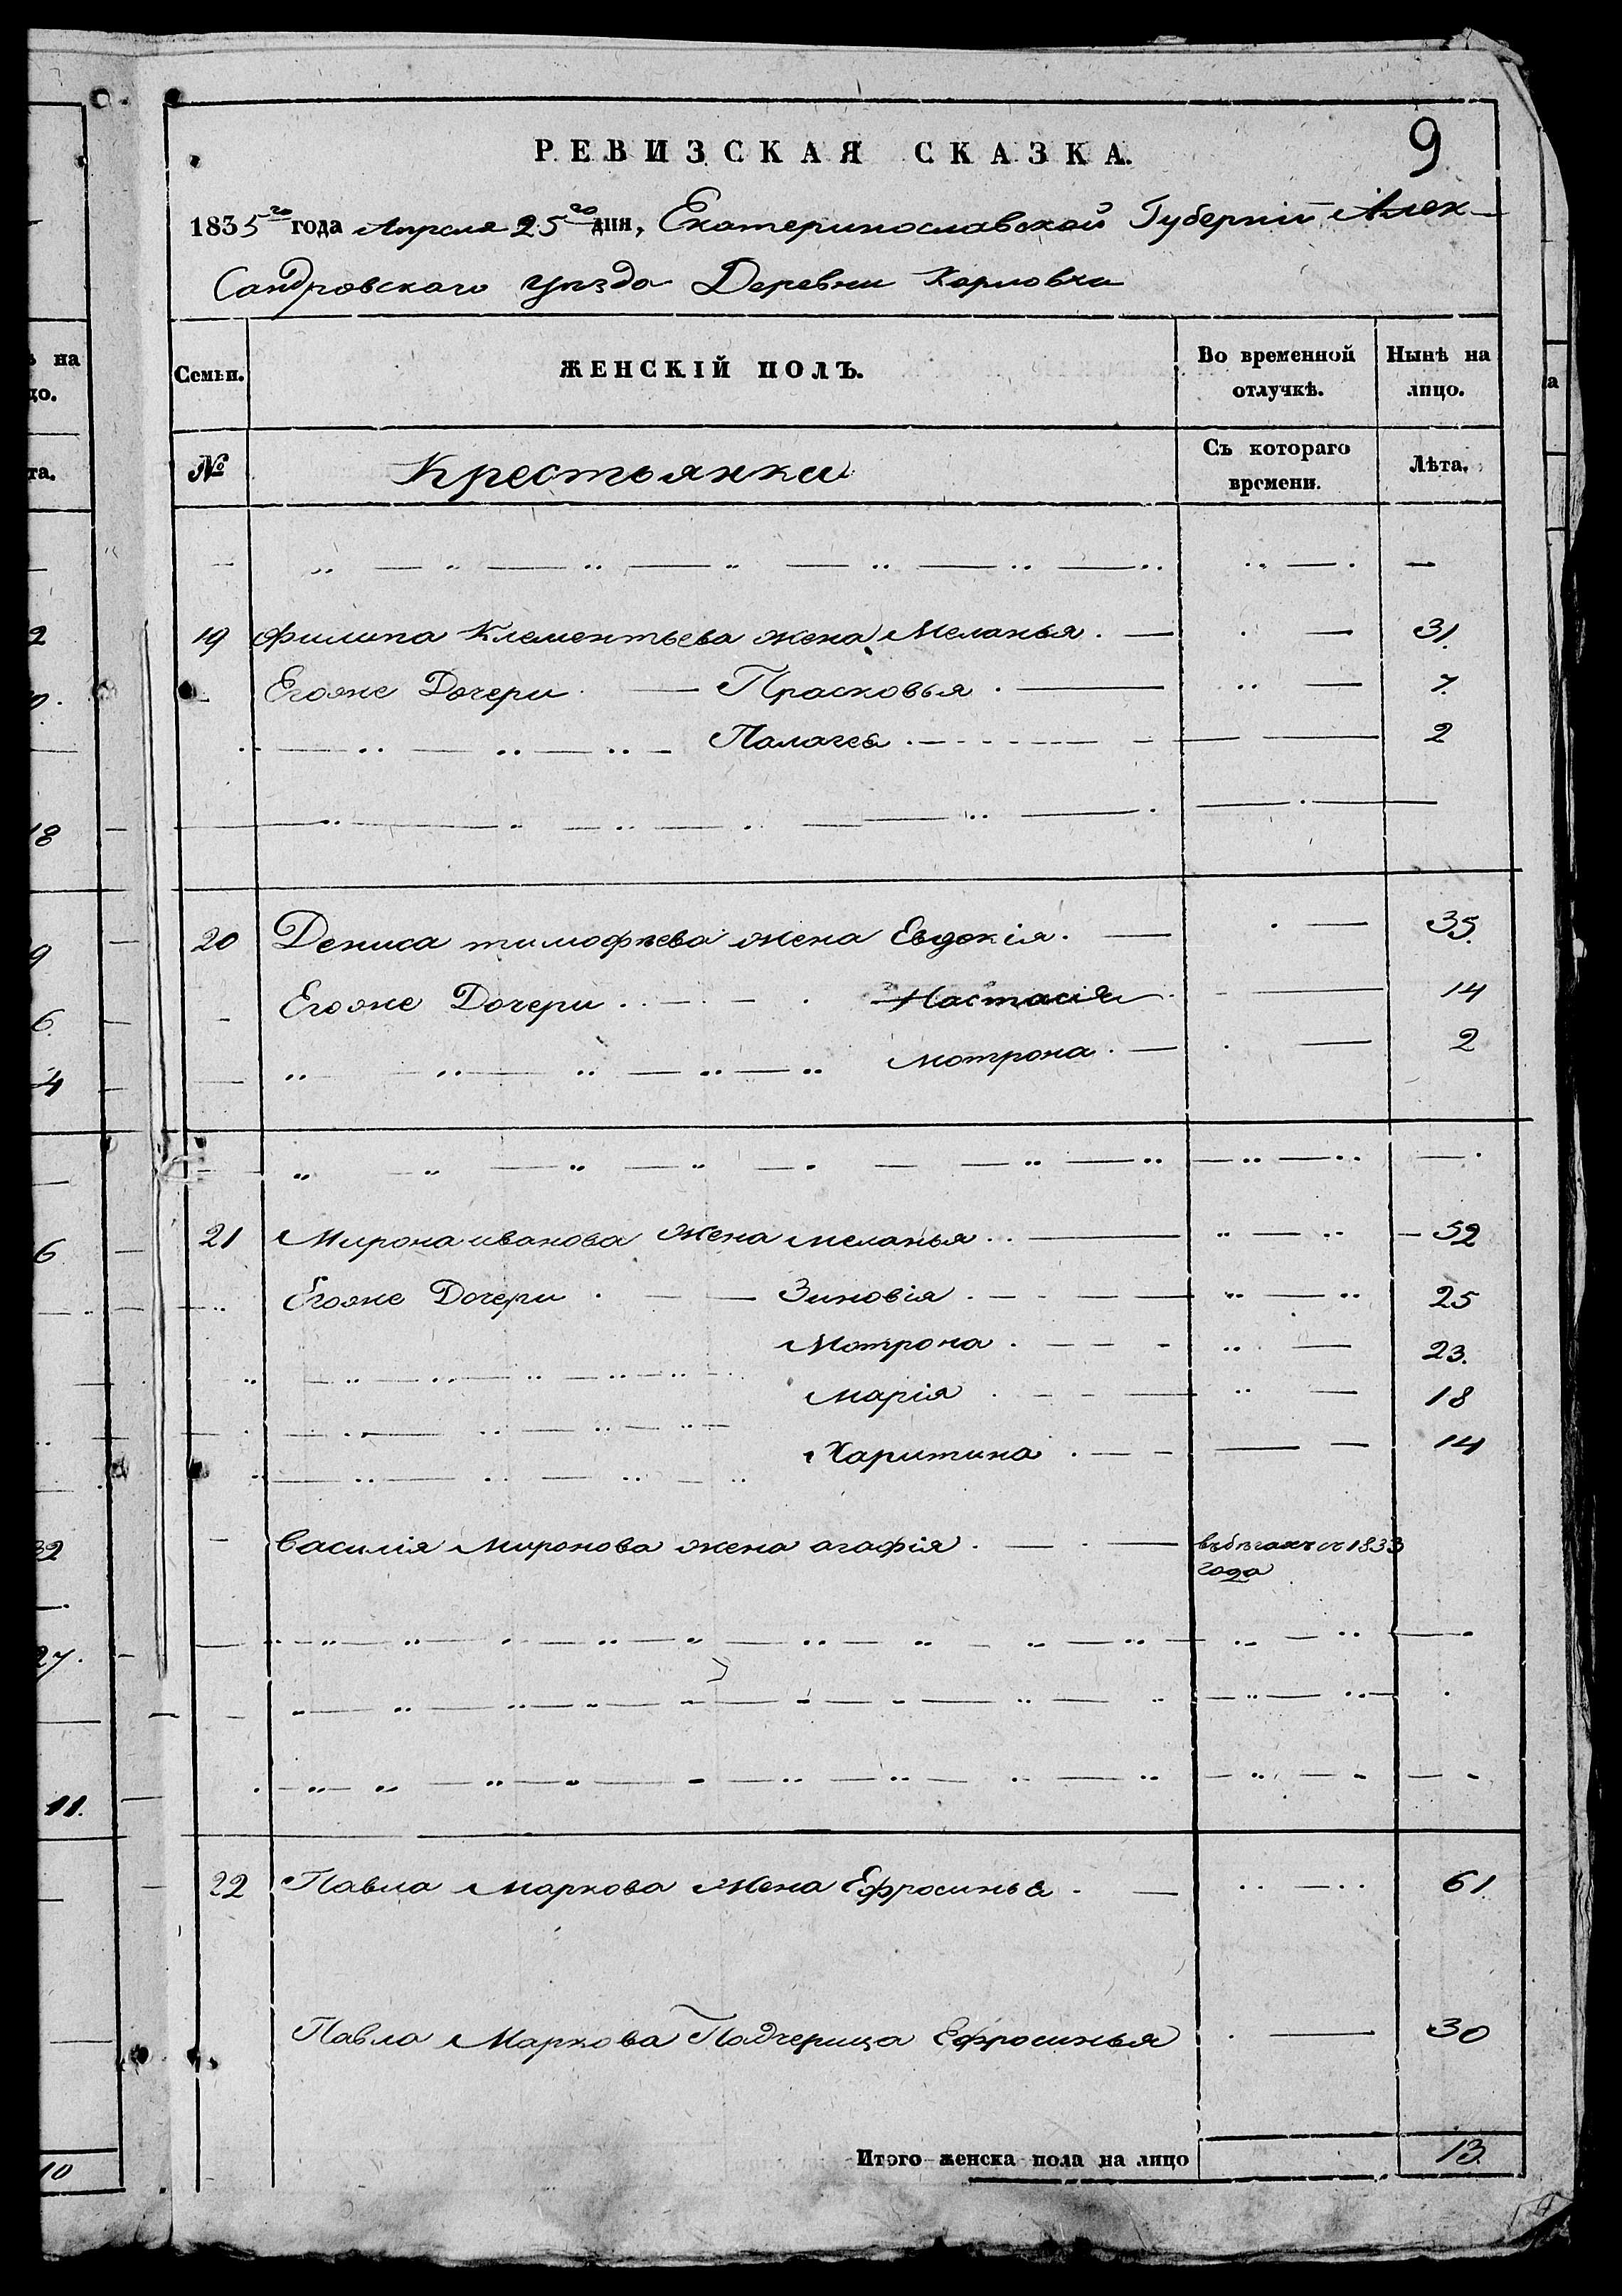 9
РЕВИЗСКАЯ СКАЗКА.
1835го года Апреля 25го дня, Екатеринославской Губерніи Алек-
Сандровскаго уѣзда Деревни Карловки
ѣ на
цо.
Семьи.
ЖЕНСКІЙ ПОЛЪ.
Во временной отлучкѣ.
Нынѣ на лицо.
та.
№
Крестьянки
Съ котораго времени.
Лѣта.
19 Филипа Клементьева жена Меланья. 31.
Егоже Дочери Прасковья. 7.
Палагея. 2
20 Дениса тимофѣева жена Евдокія. 35.
Егоже Дочери Настасія 14
мотрона. 2
21 Мирона иванова жена меланья. 52
Егоже Дочери Зиновія. 25
Мотрона. 23.
марія 18
Харитина. 14
Василія Миронова жена агафія. въбѣгахъ съ 1833
года
22 Павла маркова жена Ефросинья. 61.
Павла Маркова Падчерица Ефросинья 30
Итого женска пола на лицо 13.